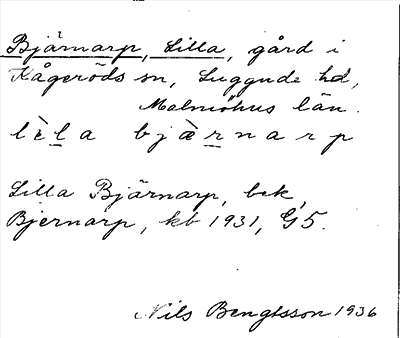 Bjärnarp, Lilla, gård i
Kågeröds sn, Luggude hd,
Malmöhus län.
lèla bjærnarp
Lilla Bjärnarp, bek,
Bjernarp, kb 1931, G5.
Nils Bengtsson 1936